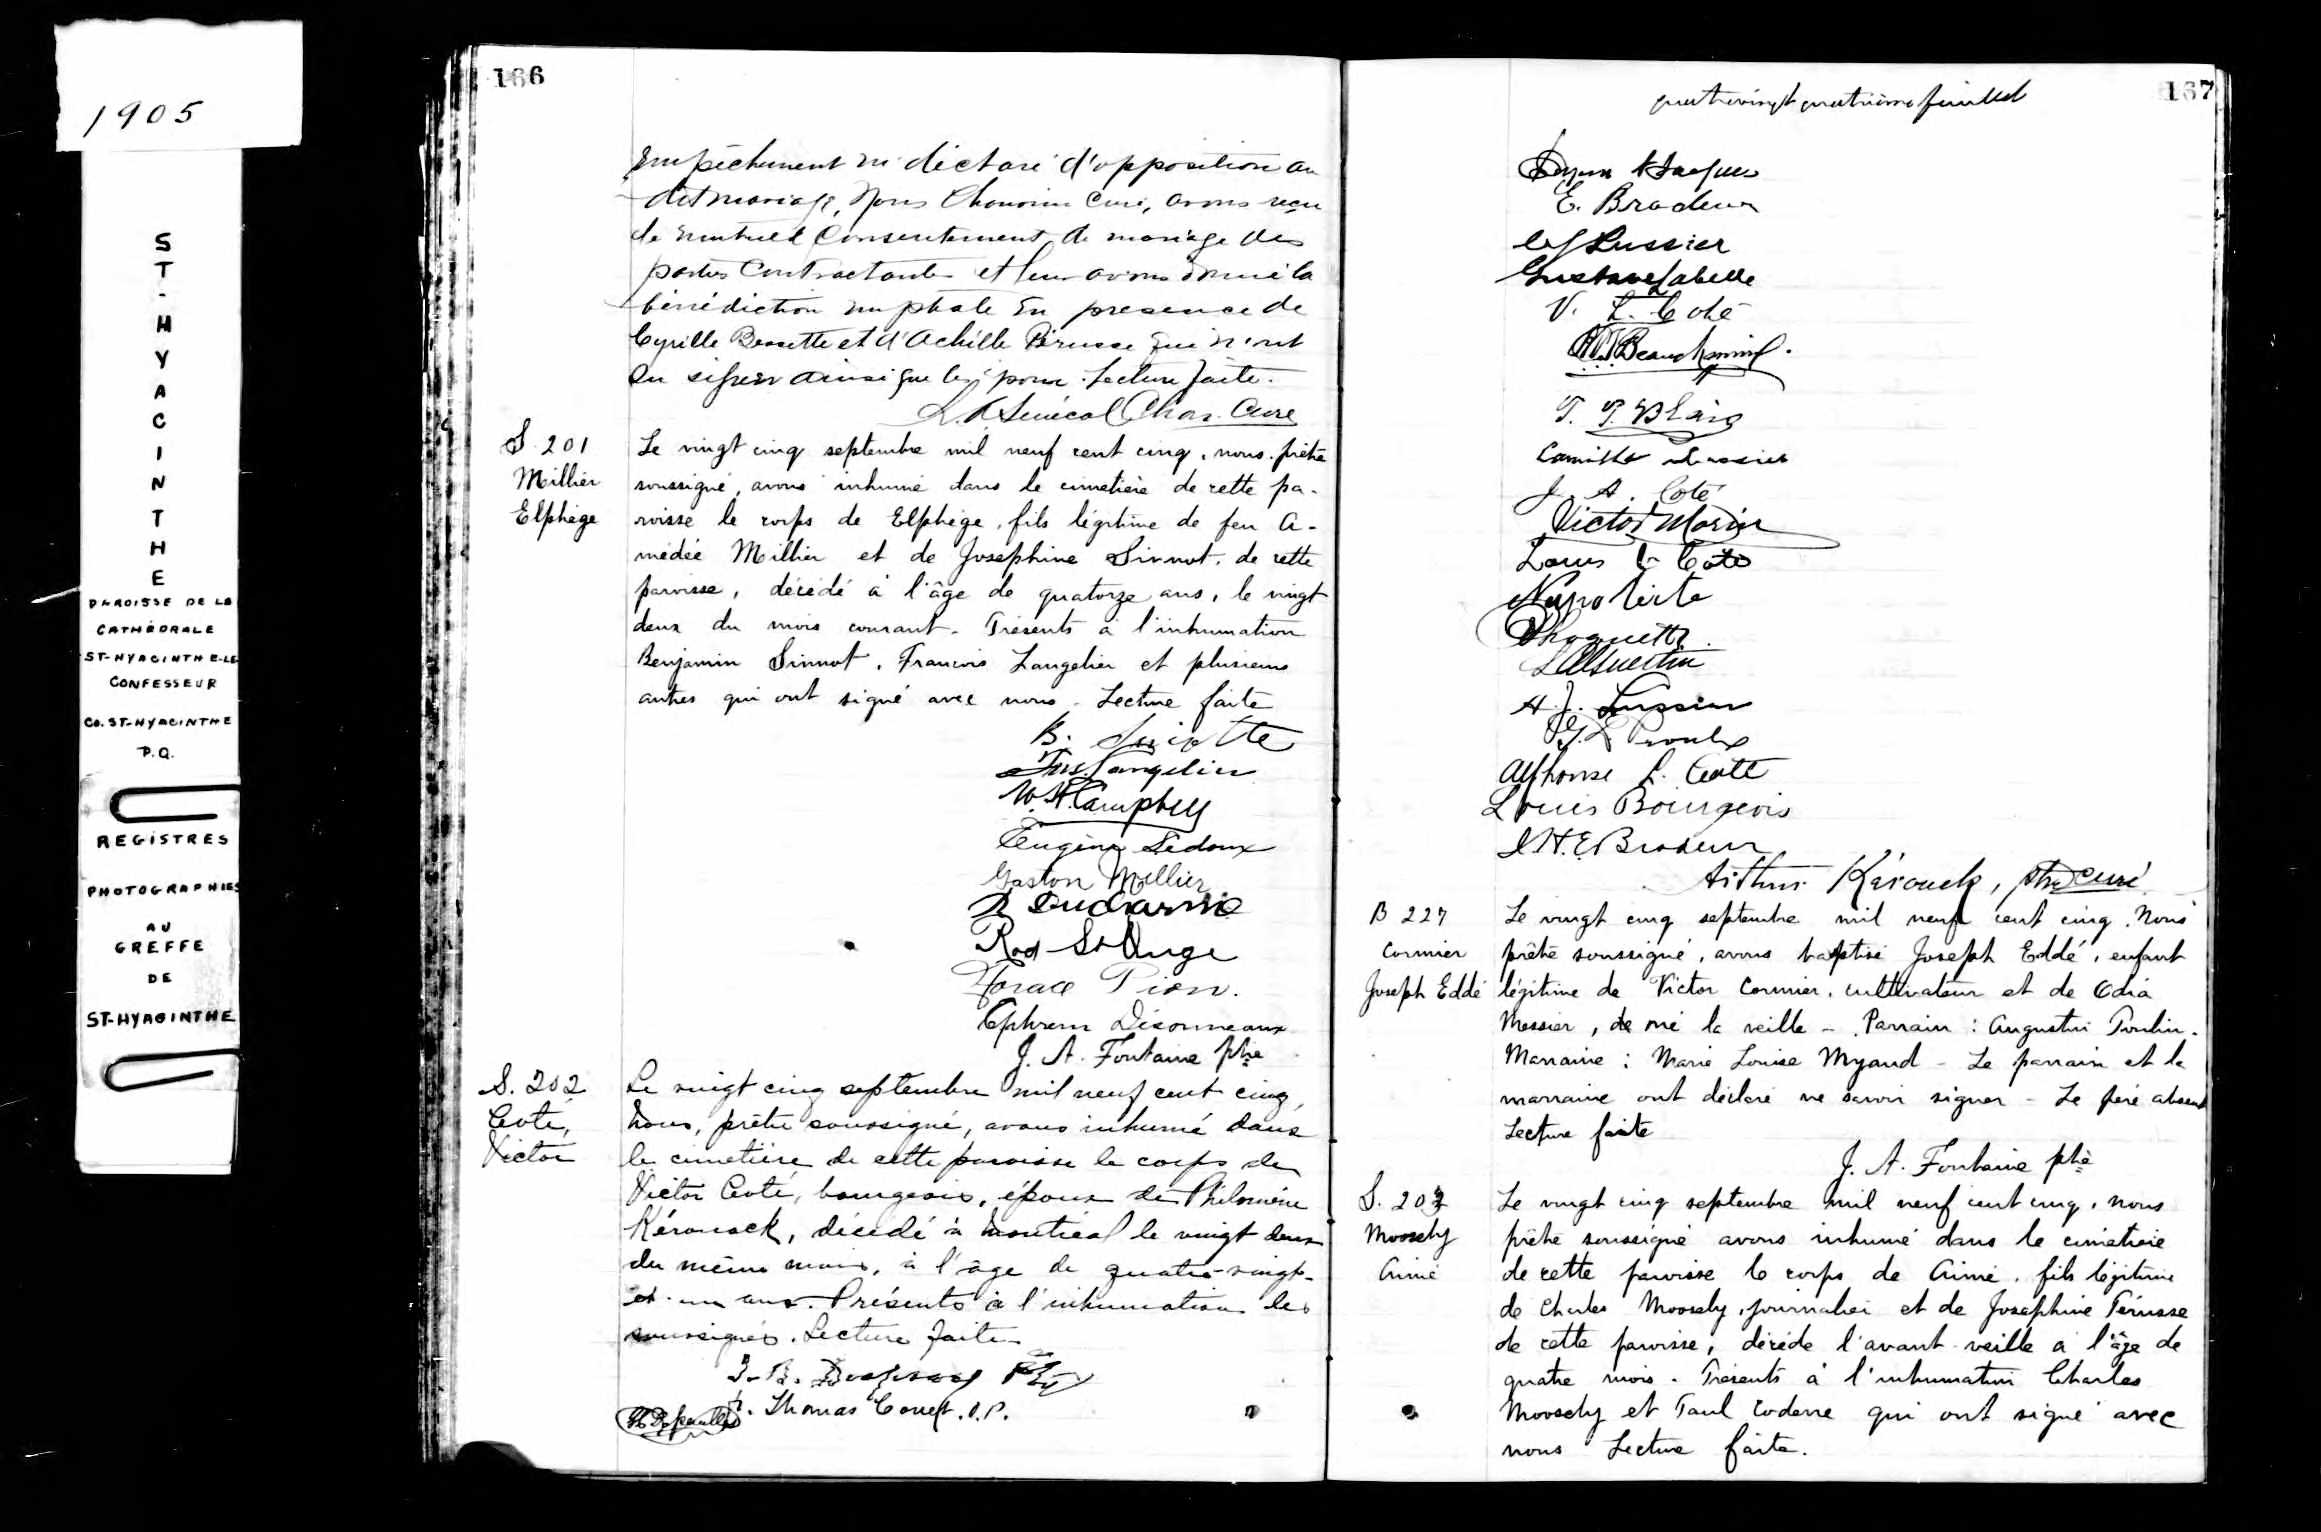 1905
ST-HYACINTHE
PAROISSE DE LA
CATHÉDRALE
ST-HYACINTHE-LE
CONFESSEUR
CO. ST-HYACINTHE
P.Q.
REGISTRES
PHOTOGRAPHIES
AU
GREFFE
DE
ST-HYACINTHE
166
empêchement ni déclaré d'opposition au
dit mariage, Nous Chanoine Curé, avons reçu
le mutuel consentement de mariage des
parties contractantes et leur avons donné la
bénédiction nuptiale en presence de
Cyrille Bessette et d'Achille Brusse qui n'ont
su signer ainsi que les époux. Lecture faite.
Senécal Chan. Curé
S. 201
Millier
Elphége
Le vingt cinq septembre mil neuf cent cinq, nous prêtre
soussigné, avons inhumé dans le cimetière de cette pa-
roisse le corps de Elphége, fils légitime de feu A-
médée Millier et de Josephine Sinnot, de cette
paroisse, décédé à l'âge de quatorze ans, le vingt
deux du mois courant. Présents à l'inhumation
Benjamin Sinnot, Francois Langelier et plusieurs
autres qui ont signé avec nous. Lecture faite
B.
Frs. Langelier
W. H. Campbell
Eugène Ledoux
Gaston Millier
Ducharme
Rod St Onge
Horace Pion.
Ephrem Désormeaux
J. A. Fontaine ptre
S. 202
Coté,
Victor
Le vingt cinq septembre mil neuf cent cinq,
Nous, prêtre soussigné, avons inhumé dans
le cimetière de cette paroisse le corps de
Victor Coté, bourgeois, époux de Philomène
Kérouack, décédé à Montréal le vingt deux
du même mois, à l'âge de quatre-vingt-
et-un ans. Présents à l'inhumation les
soussignés. Lecture faite
J. B.
Thomas Couet. O.P.
167
quatrevingt quatrième feuillet
E. Brodeur
Lussier
Gustave Labelle
V. L. Coté
Beauchemin.
T. P. Blain
Camille Lussier
J. A. Coté
Victor Morin
Louis Coté
Choquette.
A. J. Lussier
Proulx
Alphonse L. Coté
Louis Bourgeois
J. H. E. Brodeur
Arthur Kérouack, ptre curé
B 227
Cormier
Joseph Eddé
Le vingt cinq septembre mil neuf cent cinq, Nous
prêtre soussigné, avons baptisé Joseph Eddé, enfant
légitime de Victor Cormier, cultivateur et de Odia
Messier, de né la veille - Parrain : Augustin Poulin.
Marraine : Marie Louise Myand - Le parrain et la
marraine ont déclaré ne savoir signer - Le père absent
Lecture faite
J. A. Fontaine ptre
S. 203
Moosely
Aimé
Le vingt cinq septembre mil neuf cent cinq, nous
prêtre soussigné avons inhumé dans le cimetière
de cette paroisse le corps de Aimé, fils légitime
de Charles Moosely, journalier et de Josephine Pérusse
de cette paroisse, décédé l'avant-veille à l'âge de
quatre mois. Présents à l'inhumation Charles
Moosely et Paul Coderre qui ont signé avec
nous Lecture faite.